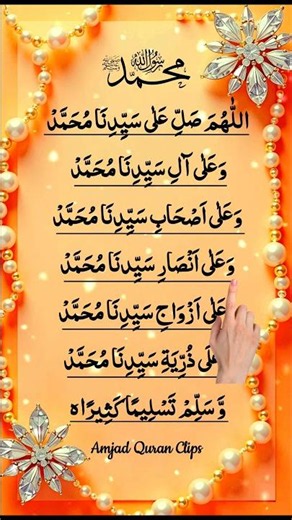 محمد رسول الله ﷺ
اللّٰهُمَ صَلِّ عَلٰی سَيِّدِنَا مُحَمَّدْ
وَعَلٰی آلِ سَيِّدِنَا مُحَمَّدْ
وَعَلٰی اَصْحَابِ سَيِّدِنَا مُحَمَّدْ
وَعَلٰی اَنْصَارِ سَيِّدِنَا مُحَمَّدْ
وَعَلٰی اَزْوَاجِ سَيِّدِنَا مُحَمَّدْ
وَعَلٰی ذُرِّيَةِ سَيِّدِنَا مُحَمَّدْ
وَّسَلِّمْ تَسْلِيْمًا كَثِيْرًا٥
Amjad Quran Clips